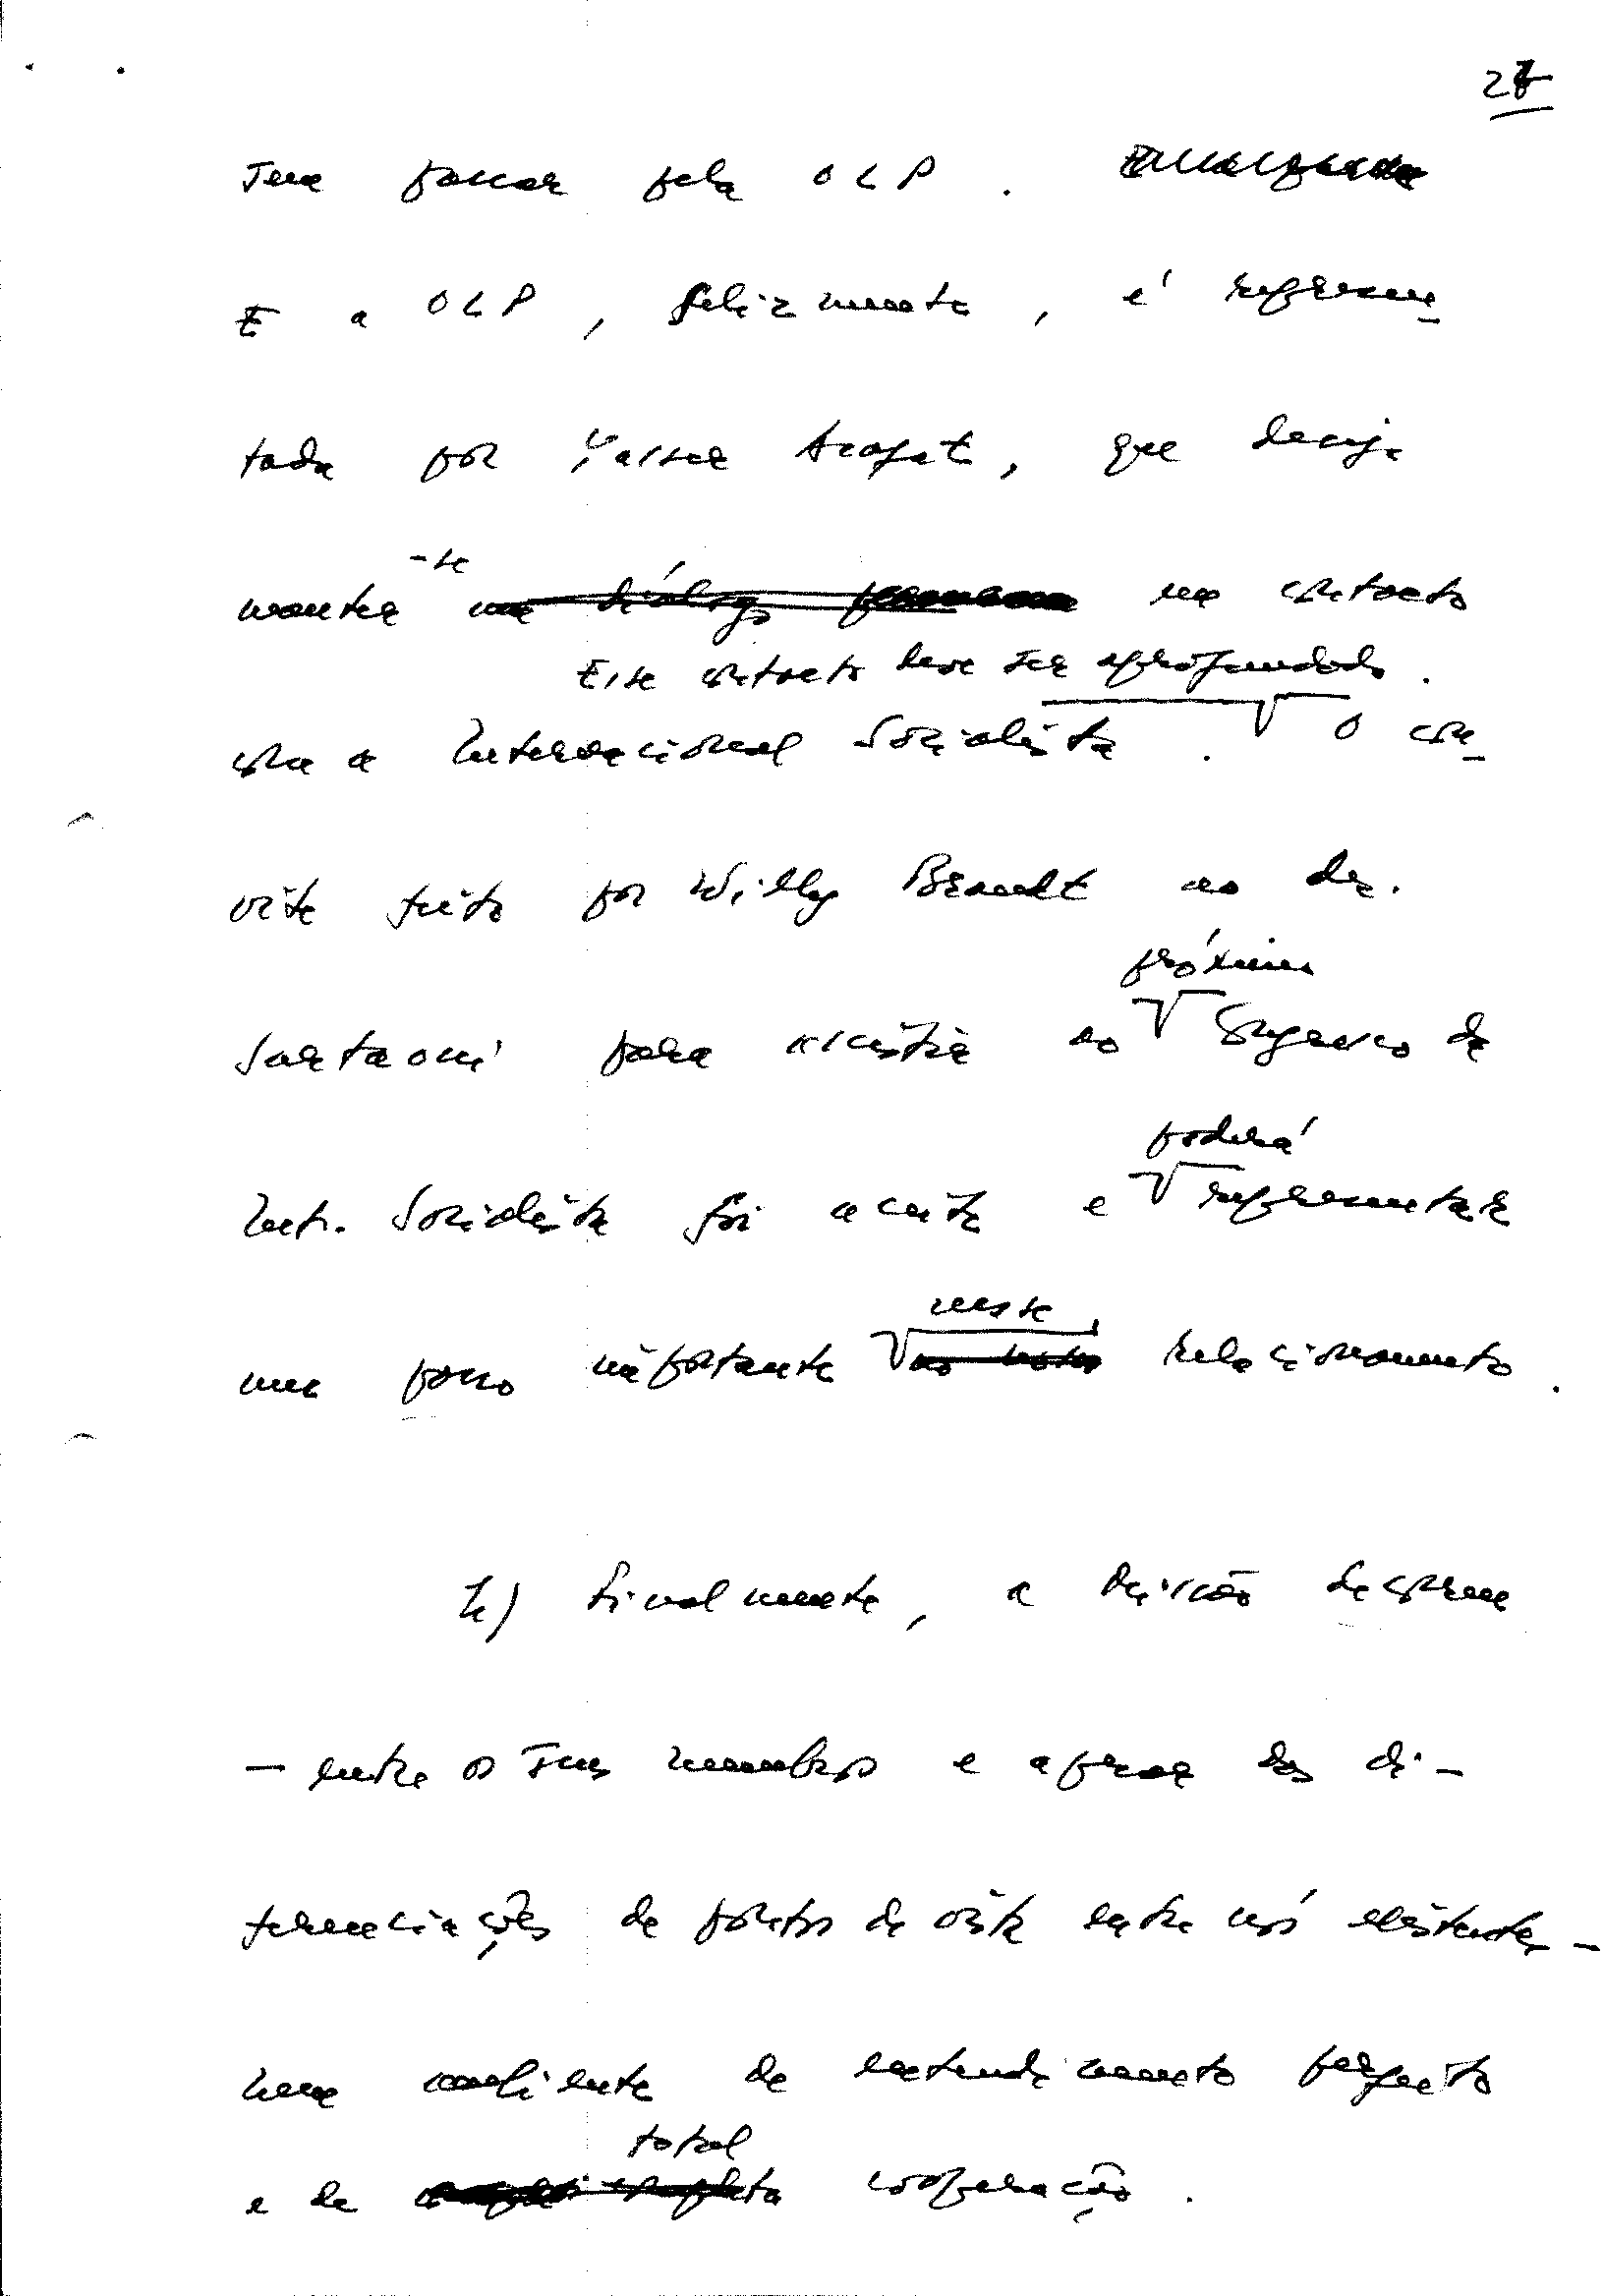 27
sem passar pela OLP.
E a OLP, felizmente, é represen-
tada por Yasser Arafat, que deseja
-se
manter um diálogo em contacto
Este contacto deve ser aprofundado.
com a Internacional Socialista. O con-
vite feito por Willy Brandt ao dr.
próximo
Sartaoui para assistir ao Congresso da
poderá
Int. Socialista foi aceite e representar
neste
um passo importante relacionamento.
h) Finalmente, a decisão de
- entre os seus membros e apesar das di-
ferenciações de pontos de vista entre nós existentes -
num ambiente de entendimento perfeito
total
e de cooperação.